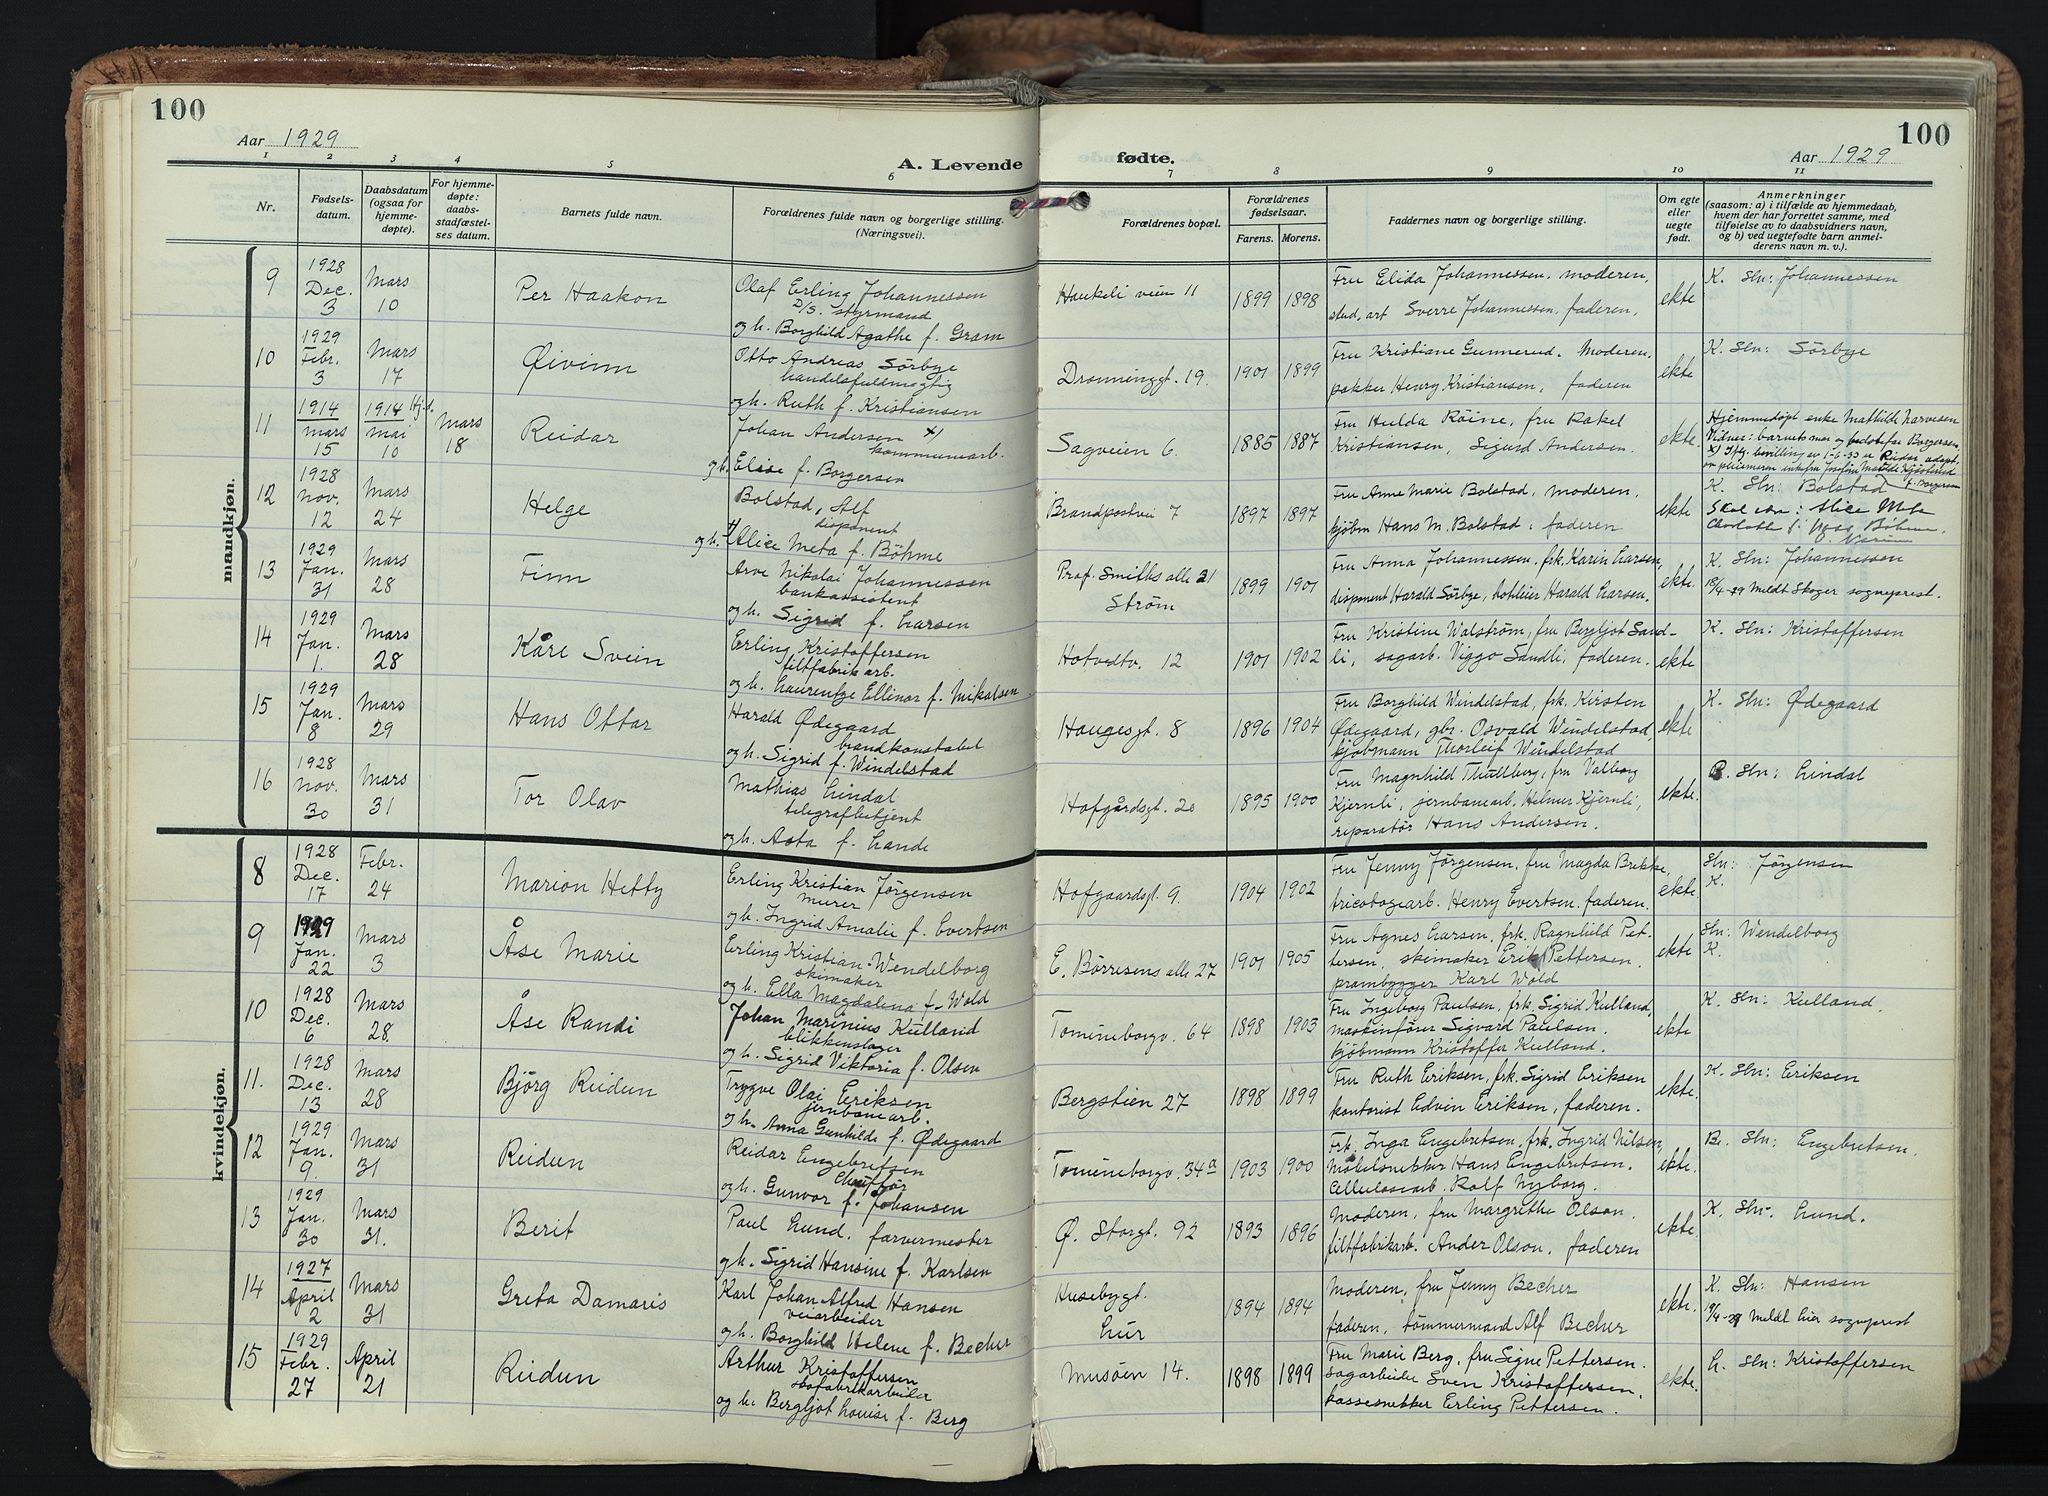 100
Aar 1929
A. Levende
1 2 3 4 5 6
Nr.
Fødsels-
datum.
Daabsdatum
(ogsaa for
hjemme-
døpte).
For hjemme-
døpte:
daabs-
stadfæstel-
ses datum.
Barnets fulde navn.
Forældrenes fulde navn og borgerlige stilling.
(Næringsvei).
mandkjøn.
9 1928 Dec. 3 Mars 10 Per Haakon
Olaf Erling Johannessen
D/S. styrmand
og h. Borghild Agathe f. Gram
10 1929 Febr. 3 Mars 17 Øivinn
Otto Andreas Sörbye
handelsfuldmegtig
og h. Ruth f. Kristiansen
11 1914 mars 15 1914 Hj.d. mai 10 Mars 18 Reidar
Johan Andersen x)
kommunearb.
og h. Elise f. Borgersen
12 1928 Nov. 12 Mars 24 Helge
Bolstad, Alf
disponent
og h. Alice Meta f. Böhme
13 1929 Jan. 31 Mars 28 Finn
Arve Nikolai Johannessen
bankassistent
og h. Sigrid f. Larsen
14 1929 Jan. 1. Mars 28 Kåre Svein
Erling Kristoffersen
filtfabrikarb.
og h. Laurentze Ellinor f. Mikalsen
15 1929 Jan. 8 Mars 29 Hans Ottar
Harald Ødegaard
brandkonstabel
og h. Sigrid f. Windelstad
16 1928 Nov. 30 Mars 31 Tor Olav
Mathias Lindal
telegrafbetjent
og h. Asta f. Lande
kvindekjøn.
8 1928 Dec. 17 Febr. 24 Marion Hetty
Erling Kristian Jørgensen
murer
og h. Ingrid Amalie f. Evertsen
9 1929 Jan. 22 Mars 3 Åse Marie
Erling Kristian Wendelborg
skimaker
og h. Ella Magdalena f. Wold
10 1928 Dec. 6 Mars 28. Åse Randi
Johan Marinius Kulland
blikkenslager
og h. Sigrid Viktoria f. Olsen
11. 1928 Dec. 13 Mars 28 Björg Reidun
Trygve Olai Eriksen
jernbanearb.
og h. Anna Gunhilde f. Ødegaard
12 1929 Jan. 9. Mars 31 Reidun
Reidar Engebretsen
Chauffør
og h. Gunvor f. Johansen
13 1929 Jan. 30 Mars 31. Berit
Paul Lund. farvermester
og h. Sigrid Hansine f. Karlsen
14 1927 April 2 Mars 31 Greta Damaris
Karl Johan Alfred Hansen
veiarbeider
og h. Borghild Helene f. Becher
15 1929 Febr. 27 April 21 Reidun
Arthur Kristoffersen
skofabrikarbeider
og h. Bergljot Louise f. Berg
100
fødte.
Aar 1929
7 8 9 10 11
Forældrenes bopæl.
Forældrenes
fødselsaar.
Farens. Morens.
Faddernes navn og borgerlige stilling.
Om egte
eller
uegte
født.
Anmerkninger
(saasom: a) i tilfælde av hjemmedaab,
hvem der har forrettet samme, med
tilføielse av to daabsvidners navn,
og b) ved uegtefødte barn anmel-
derens navn m. v.).
Haukeli veien 11 1899 1898
Fru Elida Johannessen. moderen,
stud. art Sverre Johannessen, faderen.
ekte K. Stn: Johannessen
Dronninggt. 19. 1901 1899
Fru Kristiane Gunnerud. Moderen,
pakker Henry Kristiansen, faderen
ekte K. Stn: Sörbye
Sagveien 6. 1885 1887
Fru Hulda Röine, fru Rakel
Kristiansen, Sigurd Andersen.
ekte. Hjemmedøpt enke Mathilde Narvesen
Vidner: barnets mor og Borgersen
x) Iflg. bevilling av 1-6-33 er Reidar adopt.
Brandpostvei 7 1897 1897
Fru Anne Marie Bolstad, moderen,
kjøbm Hans M. Bolstad. faderen
ekte K. Stn: Bolstad f. Borgersen
Skal være: Alice Meta
Charlotte f. Böhme.
Prof. Smiths alle 21
Ström
1899 1901
Fru Anna Johannessen. frk. Karin Larsen,
disponent Harald Sörbye, hoteleier Harald Larsen.
ekte. K. Stn: Johannessen
18/4-29 Meldt Skoger sogneprest.
Hotvedtv. 12 1901 1902
Fru Kristine Walström, fru Bergljot Sand-
li, sagarb. Viggo Sandli, faderen.
ekte K. Stn: Kristoffersen
Haugesgt. 8 1896 1904
Fru Borghild Windelstad, frk. Kirsten
Ødegaard, gbr. Osvald Windelstad,
kjøbmann Thorleif Windelstad
ekte K. Stn: Ødegaard
Hofgårdsgt. 20 1895 1900
Fru Magnhild Thullberg, fru Valborg
Kjernli, jernbanearb. Helmer Kjernli,
reparatør Hans Andersen.
ekte. B. Stn: Lindal
Hofgaardsgt. 9. 1904 1902
Fru Jenny Jørgensen. fru Magda Brekke,
tricotagearb. Henry Evertsen. faderen.
ekte. Stn: Jørgensen
K.
E. Börresens alle 27 1901 1905
Fru Agnes Larsen, frk. Ragnhild Pet-
tersen, skimaker Erik Pettersen.
prambygger Karl Wold
ekte Stn: Wendelborg
K.
Tomineborgv. 64 1898 1903
Fru Ingeborg Paulsen, frk. Sigrid Kulland,
maskinfører Sigvard Paulsen.
kjøbmann Kristoffer Kulland.
ekte K. Stn: Kulland.
Bergstien 27 1898 1899
Fru Ruth Eriksen, frk. Sigrid Eriksen
kontorist Edvin Eriksen, faderen.
ekte. K. Stn: Eriksen
Tomineborgv. 34a 1903 1900
Frk. Inga Engebretsen, frk. Ingrid Nilsen,
Möbelsnekker Hans Engebretsen.
Cellulosearb. Rolf Nyborg.
ekte. Be. Stn: Engebretsen.
Ø. Storgt. 92 1893 1896
Moderen, fru Margrethe Olson.
filtfabrikarb. Ander Olson, faderen
ekte. K. Stn. Lund.
Husebygt.
Lier
1894 1894
Moderen, fru Jenny Becher
faderen, tømmermand Alf Becher
ekte. K. Stn: Hansen
19/4-29 Meldt Lier sogneprest
Musöen 14. 1898 1899
Fru Marie Berg, fru Signe Pettersen.
sagarbeider Sven Kristoffersen,
kassesnekker Erling Pettersen.
ekte. L. Stn: Kristoffersen